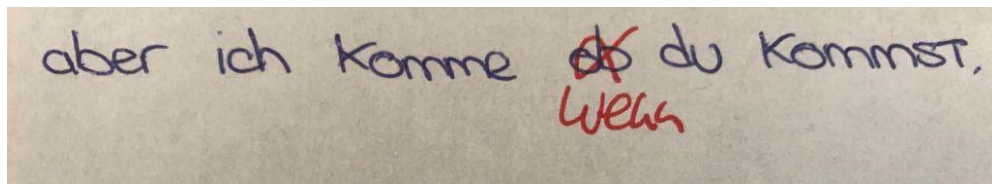 aber ich komme ob du kommst.
wenn